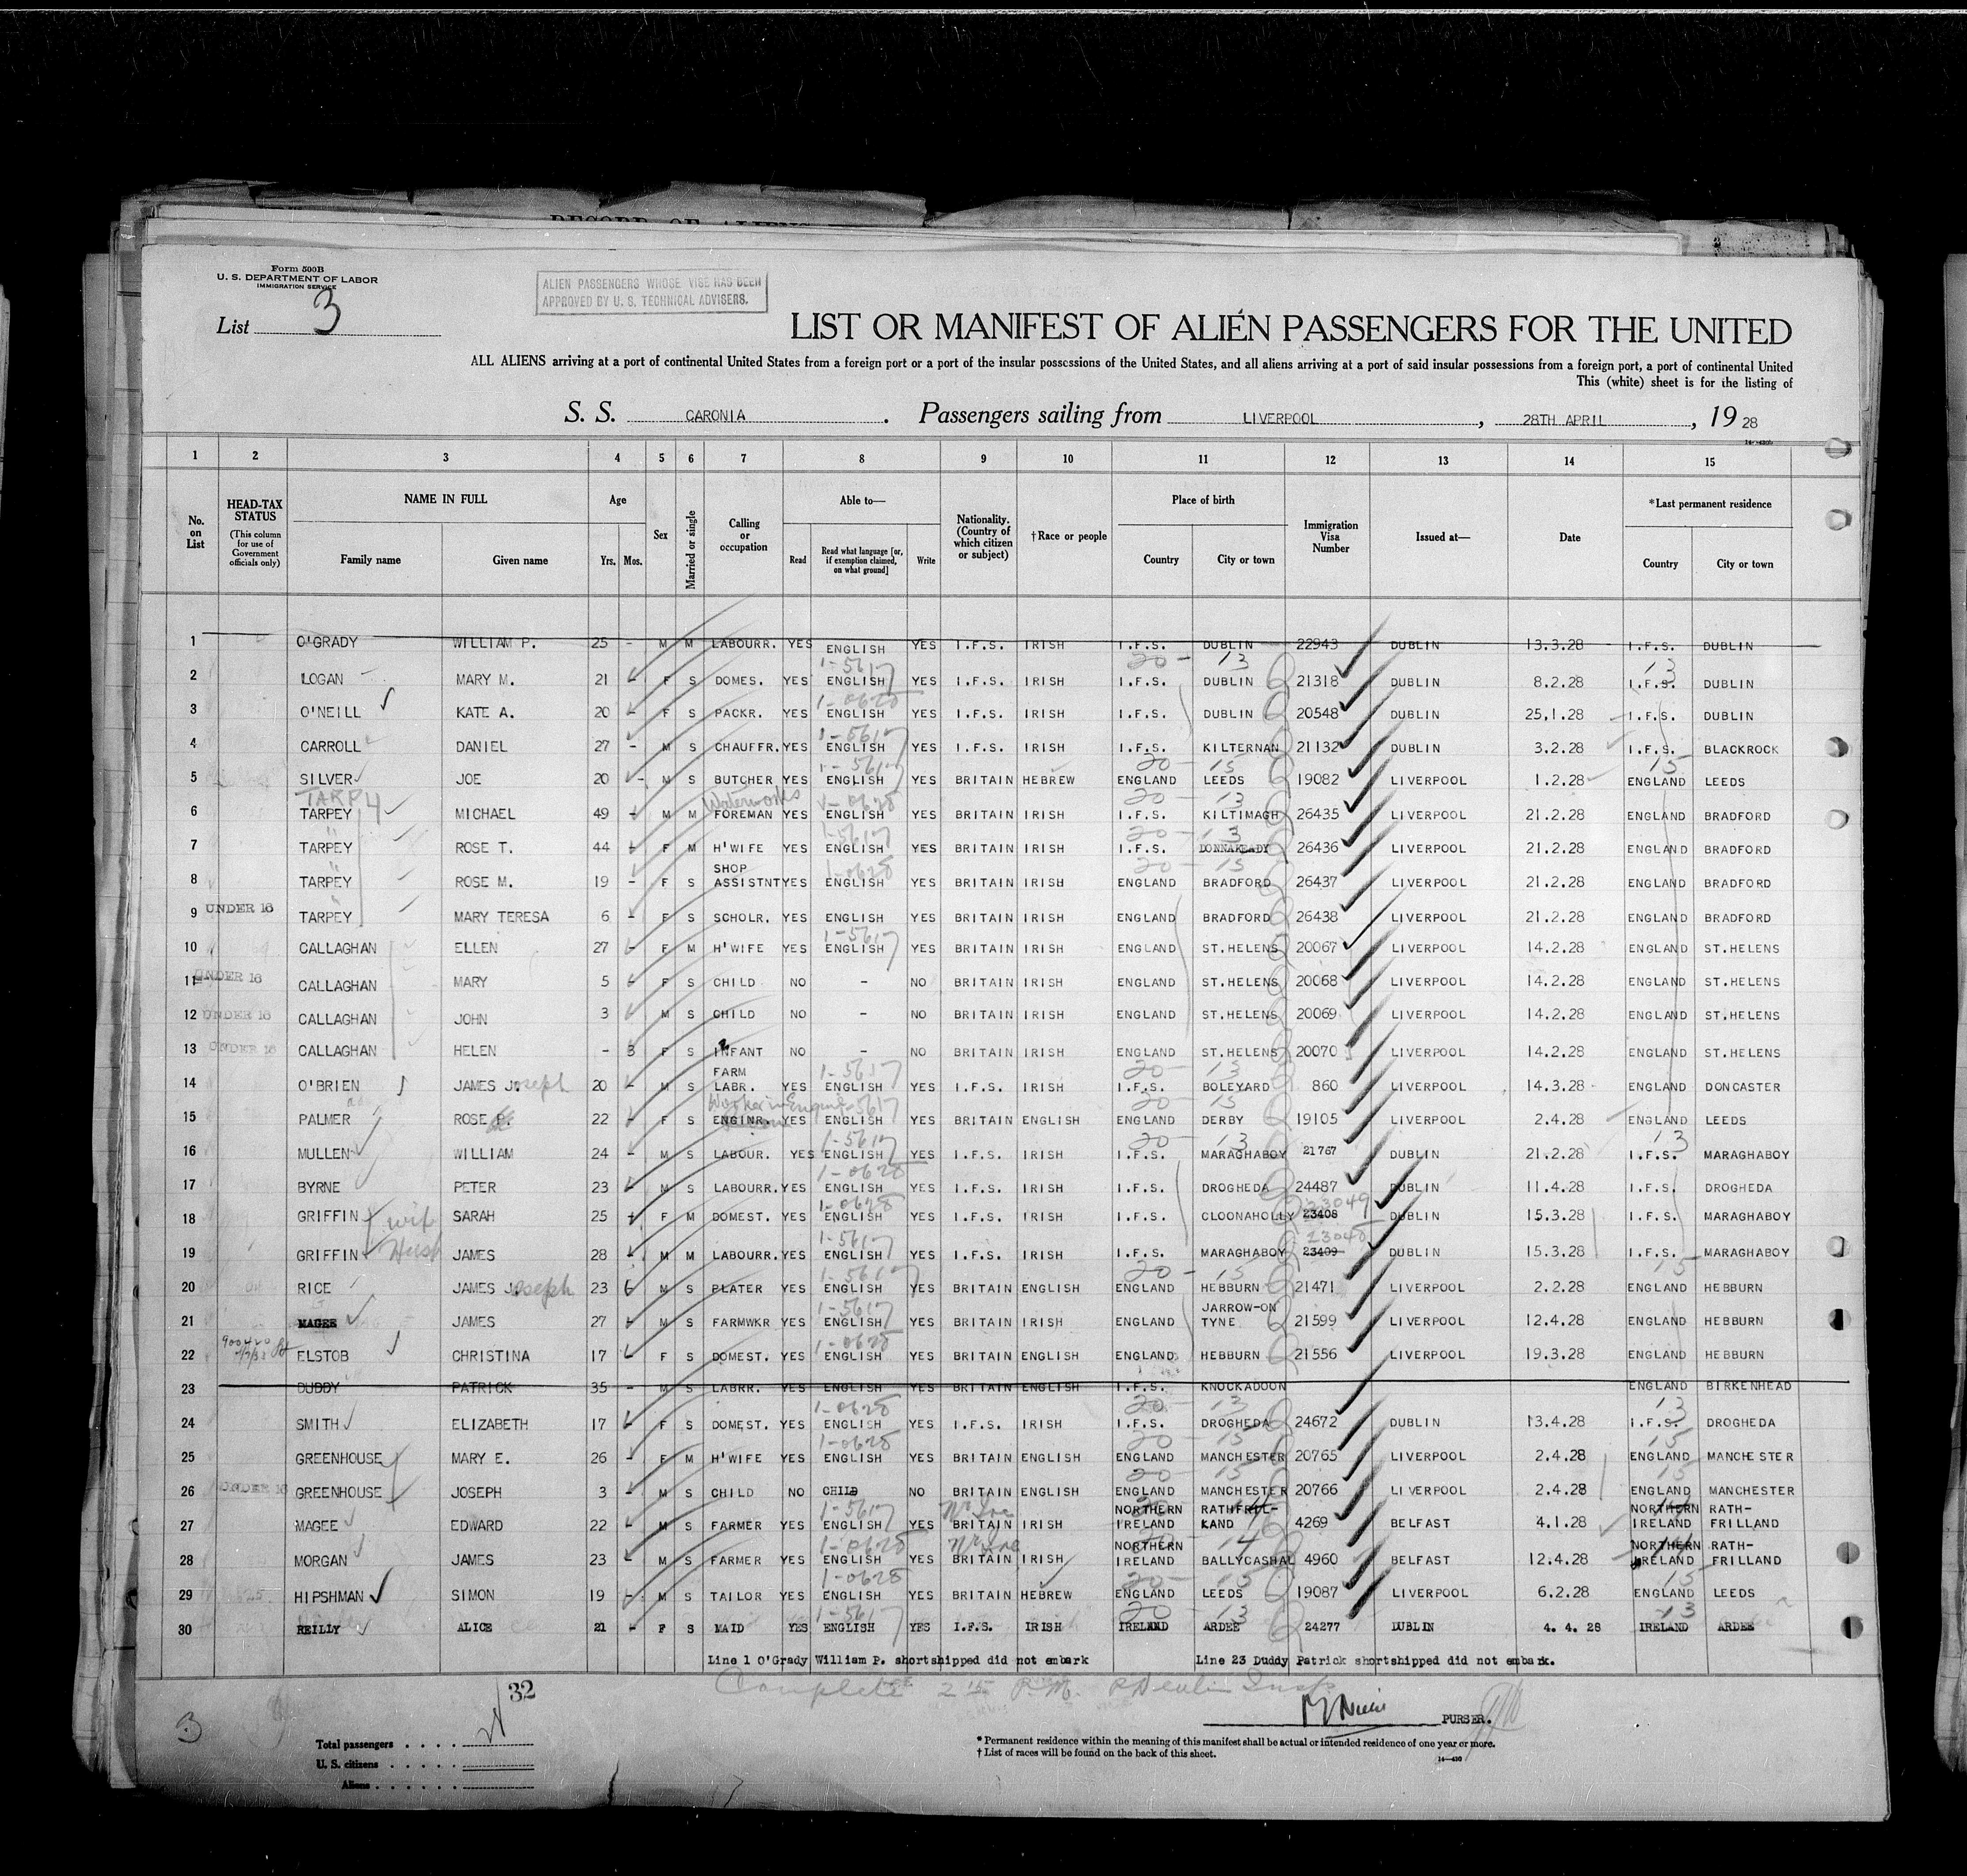 Form 500B
U. S. DEPARTMENT OF LABOR
IMMIGRATION SERVICE
ALIEN PASSENGERS WHOSE VISE HAS BEEN
APPROVED BY U. S. TECHNICAL ADVISERS.
List 3
LIST OR MANIFEST OF ALIEN PASSENGERS FOR THE UNITED
ALL ALIENS arriving at a port of continental United States from a foreign port or a port of the insular possessions of the United States, and all aliens arriving at a port of said insular possessions from a foreign port, a port of continental United
This (white) sheet is for the listing of
S. S. CARONIA. Passengers sailing from LIVERPOOL, 28TH APRIL, 19 28
1 2 3 4 5 6 7 8 9 10 11 12 13 14 15
No. on List HEAD-TAX STATUS (This column for use of Government officials only) NAME IN FULL Family name Given name Age Yrs. Mos. Sex Married or single Calling or occupation Able to— Read Read what language [or, if exemption claimed, on what ground] Write Nationality. (Country of which citizen or subject) †Race or people Place of birth Country City or town Immigration Visa Number Issued at— Date *Last permanent residence Country City or town
1 O'GRADY WILLIAM P. 25 - M M LABOURR. YES ENGLISH YES I.F.S. IRISH I.F.S. DUBLIN 22943 DUBLIN 13.3.28 I.F.S. DUBLIN
2 LOGAN MARY M. 21 - F S DOMES. YES ENGLISH YES I.F.S. IRISH I.F.S. DUBLIN 21318 DUBLIN 8.2.28 I.F.S. DUBLIN
3 O'NEILL KATE A. 20 - F S PACKR. YES ENGLISH YES I.F.S. IRISH I.F.S. DUBLIN 20548 DUBLIN 25,1.28 I.F.S. DUBLIN
4 CARROLL DANIEL 27 - M S CHAUFFR. YES ENGLISH YES I.F.S. IRISH I.F.S. KILTERNAN 21132 DUBLIN 3.2.28 I.F.S. BLACKROCK
5 SILVER JOE 20 - M S BUTCHER YES ENGLISH YES BRITAIN HEBREW ENGLAND LEEDS 19082 LIVERPOOL 1.2.28 ENGLAND LEEDS
6 TARPEY MICHAEL 49 - M M Waterworks FOREMAN YES ENGLISH YES BRITAIN IRISH I.F.S. KILTIMAGH 26435 LIVERPOOL 21.2.28 ENGLAND BRADFORD
7 TARPEY ROSE T. 44 - F M H'WIFE YES ENGLISH YES BRITAIN IRISH I.F.S. 26436 LIVERPOOL 21.2.28 ENGLAND BRADFORD
8 TARPEY ROSE M. 19 - F S SHOP ASSISTNT YES ENGLISH YES BRITAIN IRISH ENGLAND BRADFORD 26437 LIVERPOOL 21.2.28 ENGLAND BRADFORD
9 UNDER 16 TARPEY MARY TERESA 6 - F S SCHOLR. YES ENGLISH YES BRITAIN IRISH ENGLAND BRADFORD 26438 LIVERPOOL 21.2.28 ENGLAND BRADFORD
10 CALLAGHAN ELLEN 27 - F M H'WIFE YES ENGLISH YES BRITAIN IRISH ENGLAND ST.HELENS 20067 LIVERPOOL 14.2.28 ENGLAND ST.HELENS
11 UNDER 16 CALLAGHAN MARY 5 - F S CHILD NO - NO BRITAIN IRISH ENGLAND ST.HELENS 20068 LIVERPOOL 14.2.28 ENGLAND ST.HELENS
12 UNDER 16 CALLAGHAN JOHN 3 M S CHILD NO - NO BRITAIN IRISH ENGLAND ST.HELENS 20069 LIVERPOOL 14.2.28 ENGLAND ST.HELENS
13 UNDER 16 CALLAGHAN HELEN - 3 F S INFANT NO - NO BRITAIN IRISH ENGLAND ST.HELENS 20070 LIVERPOOL 14.2.28 ENGLAND ST.HELENS
14 O'BRIEN JAMES Joseph 20 - M S FARM LABR. YES ENGLISH YES I.F.S. IRISH I.F.S. BOLEYARD 860 LIVERPOOL 14.3.28 ENGLAND DONCASTER
15 PALMER ROSE 22 - F S ENGINR. YES ENGLISH YES BRITAIN ENGLISH ENGLAND DERBY 19105 LIVERPOOL 2.4.28 ENGLAND LEEDS
16 MULLEN WILLIAM 24 - M S LABOUR. YES ENGLISH YES I.F.S. IRISH I.F.S. MARAGHABOY 21767 DUBLIN 21.2.28 I.F.S. MARAGHABOY
17 BYRNE PETER 23 - M S LABOURR. YES ENGLISH YES I.F.S. IRISH I.F.S. DROGHEDA 24487 DUBLIN 11.4.28 I.F.S. DROGHEDA
18 GRIFFIN wife SARAH 25 - F M DOMEST. YES ENGLISH YES I.F.S. IRISH I.F.S. CLOONAHOLLY 23049 23408 DUBLIN 15.3.28 I.F.S. MARAGHABOY
19 GRIFFIN Husb JAMES 28 - M M LABOURR. YES ENGLISH YES I.F.S. IRISH I.F.S. MARAGHABOY 23409 DUBLIN 15.3.28 I.F.S. MARAGHABOY
20 RICE JAMES Joseph 23 M S PLATER YES ENGLISH YES BRITAIN ENGLISH ENGLAND HEBBURN 21471 LIVERPOOL 2.2.28 ENGLAND HEBBURN
21 MAGEE JAMES 27 - M S FARMWKR YES ENGLISH YES BRITAIN IRISH ENGLAND JARROW-ON TYNE 21599 LIVERPOOL 12.4.28 ENGLAND HEBBURN
22 ELSTOB CHRISTINA 17 - F S DOMEST. YES ENGLISH YES BRITAIN ENGLISH ENGLAND HEBBURN 21556 LIVERPOOL 19.3.28 ENGLAND HEBBURN
23 DUDDY PATRICK 35 - M S LABRR. YES ENGLISH YES BRITAIN ENGLISH I.F.S. KNOCKADOON ENGLAND BIRKENHEAD
24 SMITH ELIZABETH 17 - F S DOMEST. YES ENGLISH YES I.F.S. IRISH I.F.S. DROGHEDA 24672 DUBLIN 13.4.28 I.F.S. DROGHEDA
25 GREENHOUSE MARY E. 26 - F M H'WIFE YES ENGLISH YES BRITAIN ENGLISH ENGLAND MANCHESTER 20765 LIVERPOOL 2.4.28 ENGLAND MANCHESTER
26 UNDER 16 GREENHOUSE JOSEPH 3 - M S CHILD NO CHILD NO BRITAIN ENGLISH ENGLAND MANCHESTER 20766 LIVERPOOL 2.4.28 ENGLAND MANCHESTER
27 MAGEE EDWARD 22 - M S FARMER YES ENGLISH YES BRITAIN IRISH NORTHERN IRELAND 4269 BELFAST 4.1.28 NORTHERN IRELAND RATH- FRILLAND
28 MORGAN JAMES 23 - M S FARMER YES ENGLISH YES BRITAIN IRISH NORTHERN IRELAND BALLYCASHAL 4960 BELFAST 12.4.28 NORTHERN IRELAND RATH- FRILLAND
29 HIPSHMAN SIMON 19 - M S TAILOR YES ENGLISH YES BRITAIN HEBREW ENGLAND LEEDS 19087 LIVERPOOL 6.2.28 ENGLAND LEEDS
30 REILLY ALICE 21 - F S MAID YES ENGLISH YES I.F.S. IRISH IRELAND ARDEE 24277 DUBLIN 4. 4. 28 IRELAND ARDEE
Line 1 O'Grady William P. shortshipped did not embark Line 23 Duddy Patrick shortshipped did not embark.
Complete 2 15 P.M.
32
3
PURSER.
Total passengers
U. S. citizens
Aliens
* Permanent residence within the meaning of this manifest shall be actual or intended residence of one year or more.
† List of races will be found on the back of this sheet.
14—430